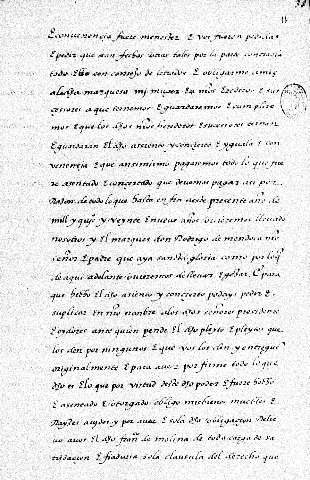 E convenencia fuere menester E vos fueren pedidas
E pedir que sean fechas otras tales por la parte contraria
todo Ello con consejo de letrados E obligarme a mi e
a la dha marquesa mi muger E a mis Erederos E sus
cesores a que ternemos E guardaremos E cunplire
mos E que los dhos nros herederos E sucesores ternan
E guardaran El dho asiento y concierto E yguala E con
venencia E que ansimismo pagaremos todo lo que fue
re asentado E concertado que devemos pagar asi por
Razon de todo lo que hasta en fin deste presente año de
mill y quis y veynte E nueve años ovieremos llevado
nosotros y El marques don Rodrigo de mendoça mi
señor E padre que aya santa gloria como por lo que
de aqui adelante ovieremos de llevar E gozar E para
que hecho El dho asiento y concierto podays pedir E
suplicar En mi nonbre a los dhos señores presidente
E oydores ante quien pende El dho pleyto E pleytos que
los den por ningunos E que vos los den y entreguen
originalmente E para aver por firme todo lo que
dho es E lo que por virtud deste dho poder E fuere hecho
E asentado E otorgado obligo mis bienes muebles E
Rayzes avidos y por aver E so la dha obligacion Relie
vo a vos El dho franco de molina de toda carga de sa
tisdacion E fiaduria so la clausula del derecho que